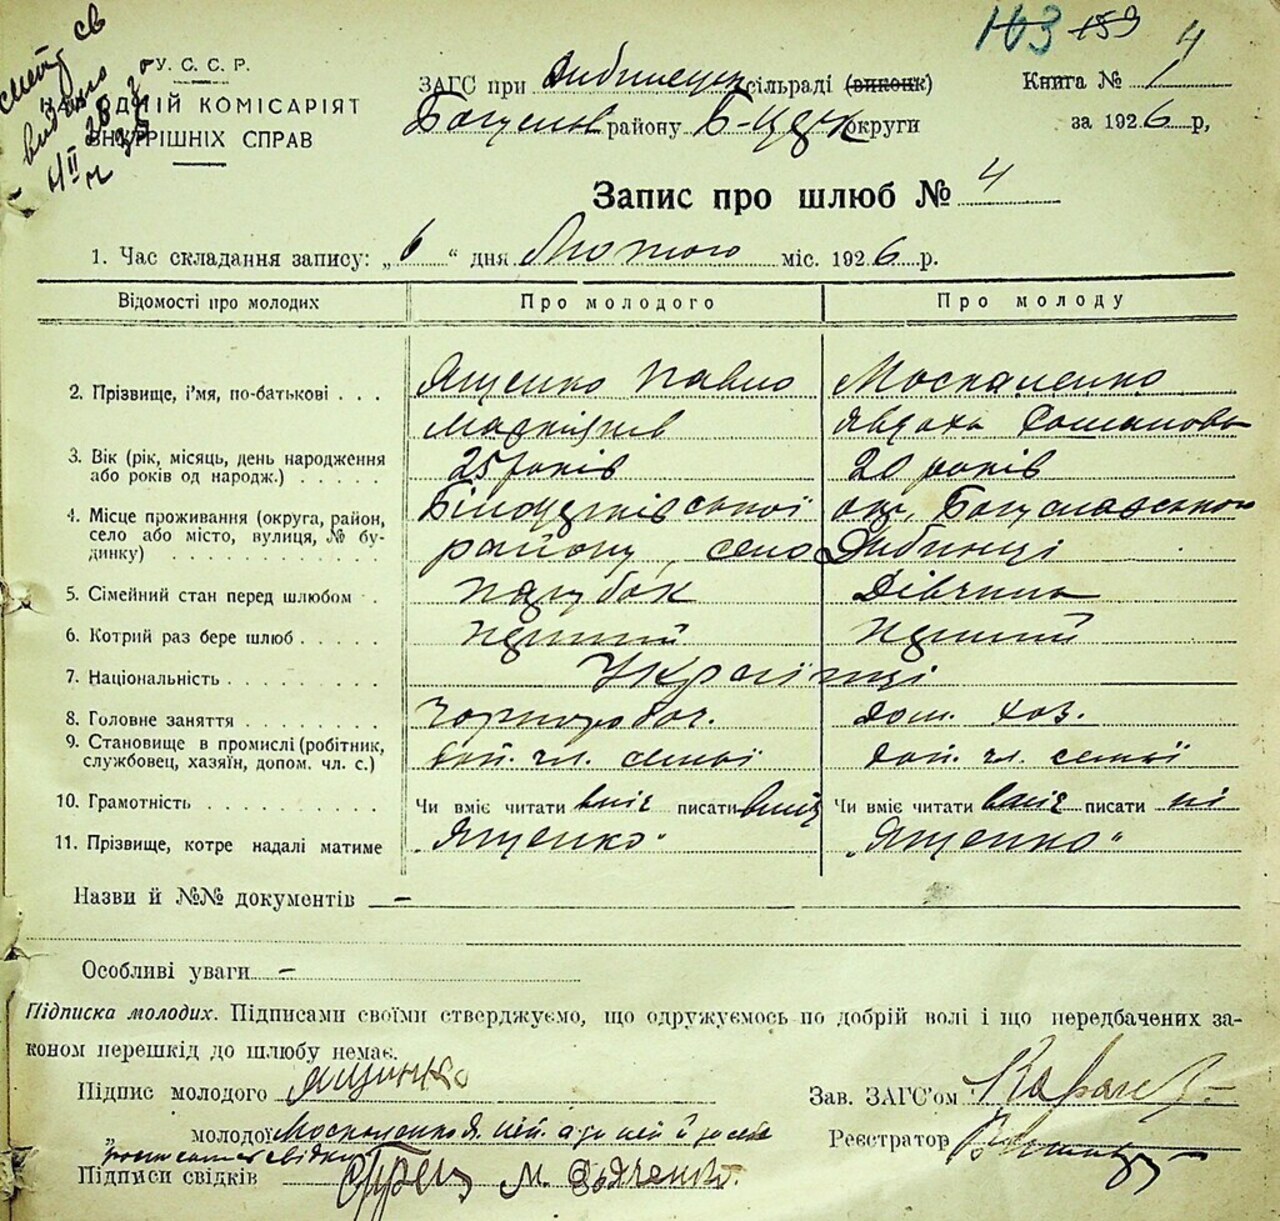 103 159 4
У. С. С. Р.
ЗАГС при Дибинецьк сільраді (виконк)
Книга № 1
КОМІСАРІЯТ
Богуслав району Б-Церк округи
за 1926 р,
ВНУТРІШНІХ СПРАВ
Запис про шлюб № 4
1. Час складання запису: „6“ дня Лютого міс. 1926 р.
Відомості про молодих Про молодого Про молоду
2. Прізвище, і'мя, по-батькові . . . Ященко Павло Москаленко
Явдоха
3. Вік (рік, місяць, день народження 25 років 20 років
або років од народж.) . . . . .
4. Місце проживання (округа, район, Білоцерківської окр. Богуславського
село або місто, вулиця, № бу- району, село Дибинці
динку) . . . . . . . . . . .
5. Сімейний стан перед шлюбом . парубок Дівчина
6. Котрий раз бере шлюб . . . . . перший перший
7. Національність . . . . . . . . . Українці
8. Головне заняття . . . . . . . . Чорнороб. дом. хоз.
9. Становище в промислі (робітник, доп. чл. семьї доп. чл. семьї
службовец, хазяїн, допом. чл. с.)
10. Грамотність . . . . . . . . . . Чи вміє читати вміє писати вміє Чи вміє читати вміє писати ні
11. Прізвище, котре надалі матиме „Ященко“ „Ященко“
Назви й №№ документів —
Особливі уваги —
Підписка молодих. Підписами своїми стверджуємо, що одружуємось по добрій волі і що передбачених за-
коном перешкід до шлюбу немає.
Підпис молодого Ященко
Зав. ЗАГС'ом
„ молодої Москаленко
Реєстратор
Підписи свідків М. Дяченко.